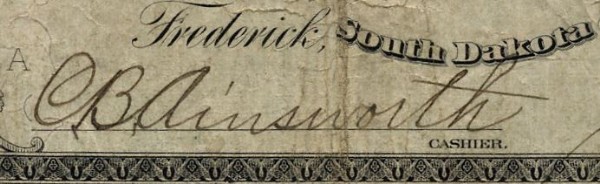 Frederick, South Dakota
A
C.B. Ainsworth
CASHIER.